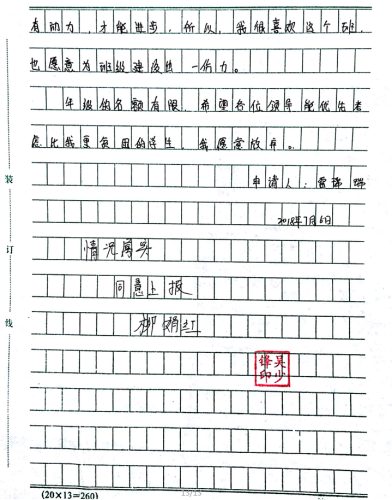 有动力，才能进步，所以，我很喜欢这个班，
也愿意为班级建设出一份力。
年级的名额有限，希望各位领导能优先考
虑比我更贫困的学生，我愿意放弃。
申请人：雷瑞瑞
2018年7月6日
情况属实
同意上报
柳娟红
装
订
线
吴少华印
(20×13=260)
13/13